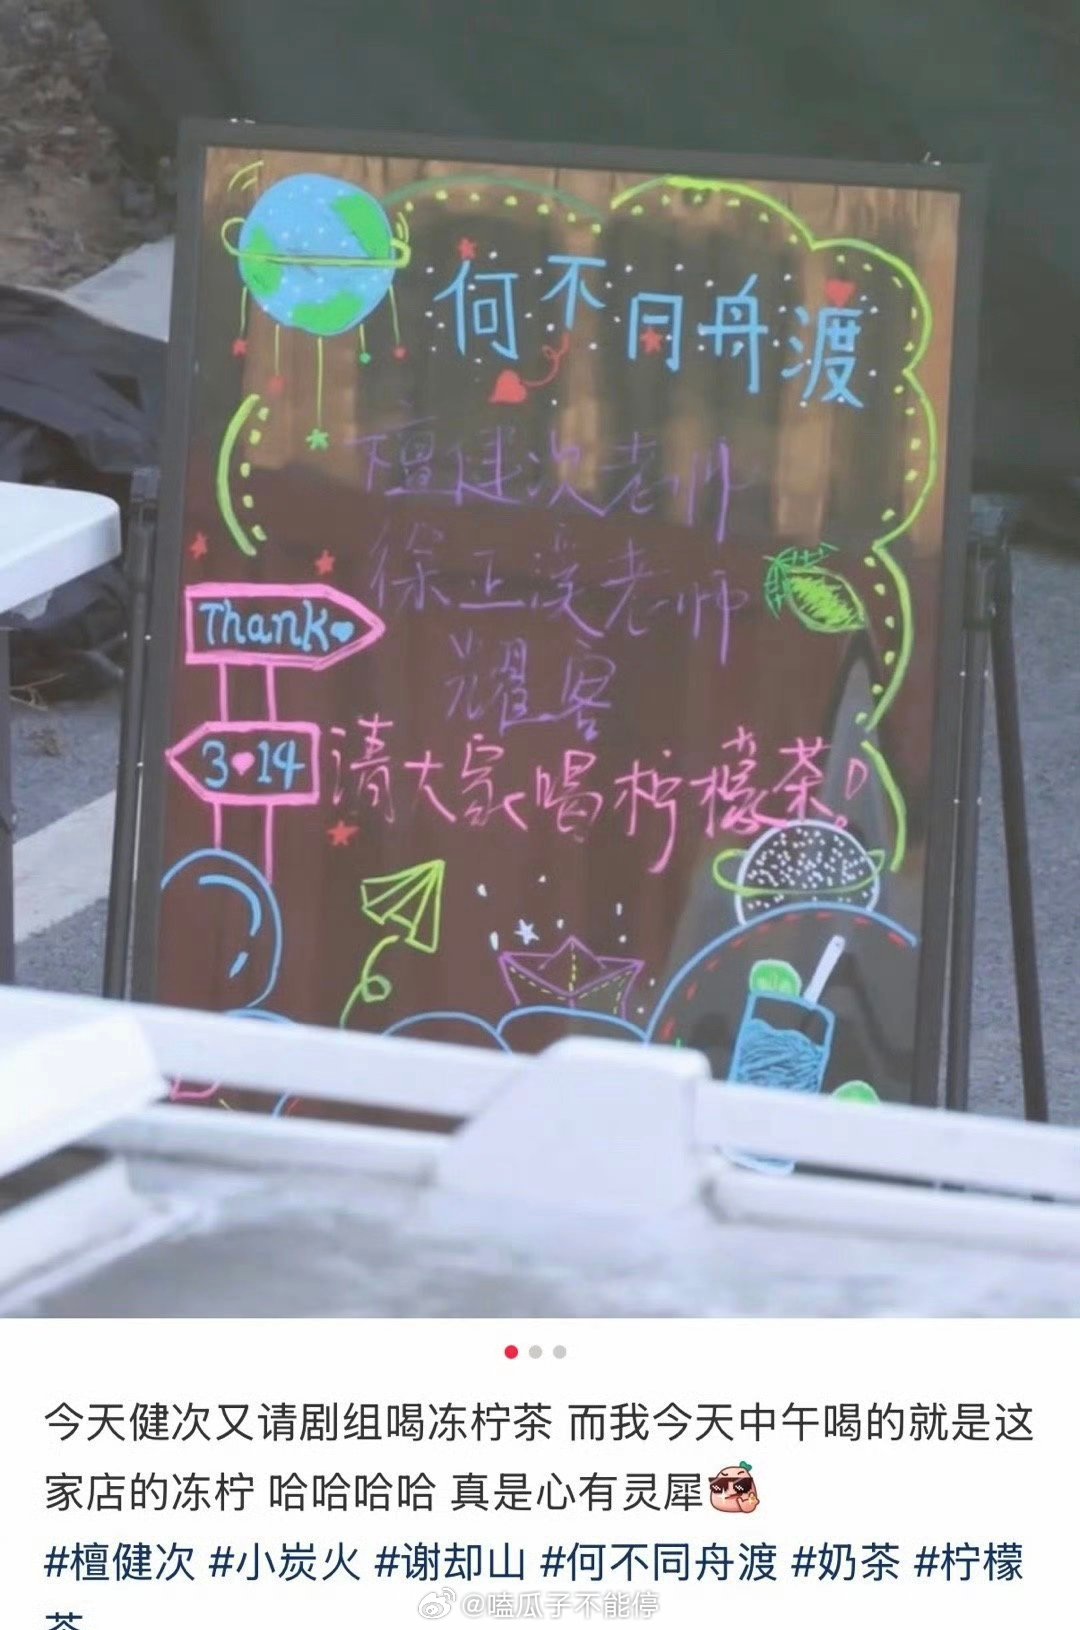 何不同舟渡
檀健次老师
徐正溪老师
耀客
Thank
3 14
请大家喝柠檬茶!
今天健次又请剧组喝冻柠茶 而我今天中午喝的就是这
家店的冻柠 哈哈哈哈 真是心有灵犀
#檀健次 #小炭火 #谢却山 #何不同舟渡 #奶茶 #柠檬
茶
@嗑瓜子不能停